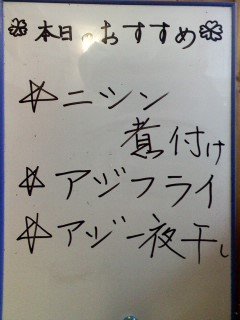 本日のおすすめ
☆ニシン
煮付け
☆アジフライ
☆アジ一夜干し